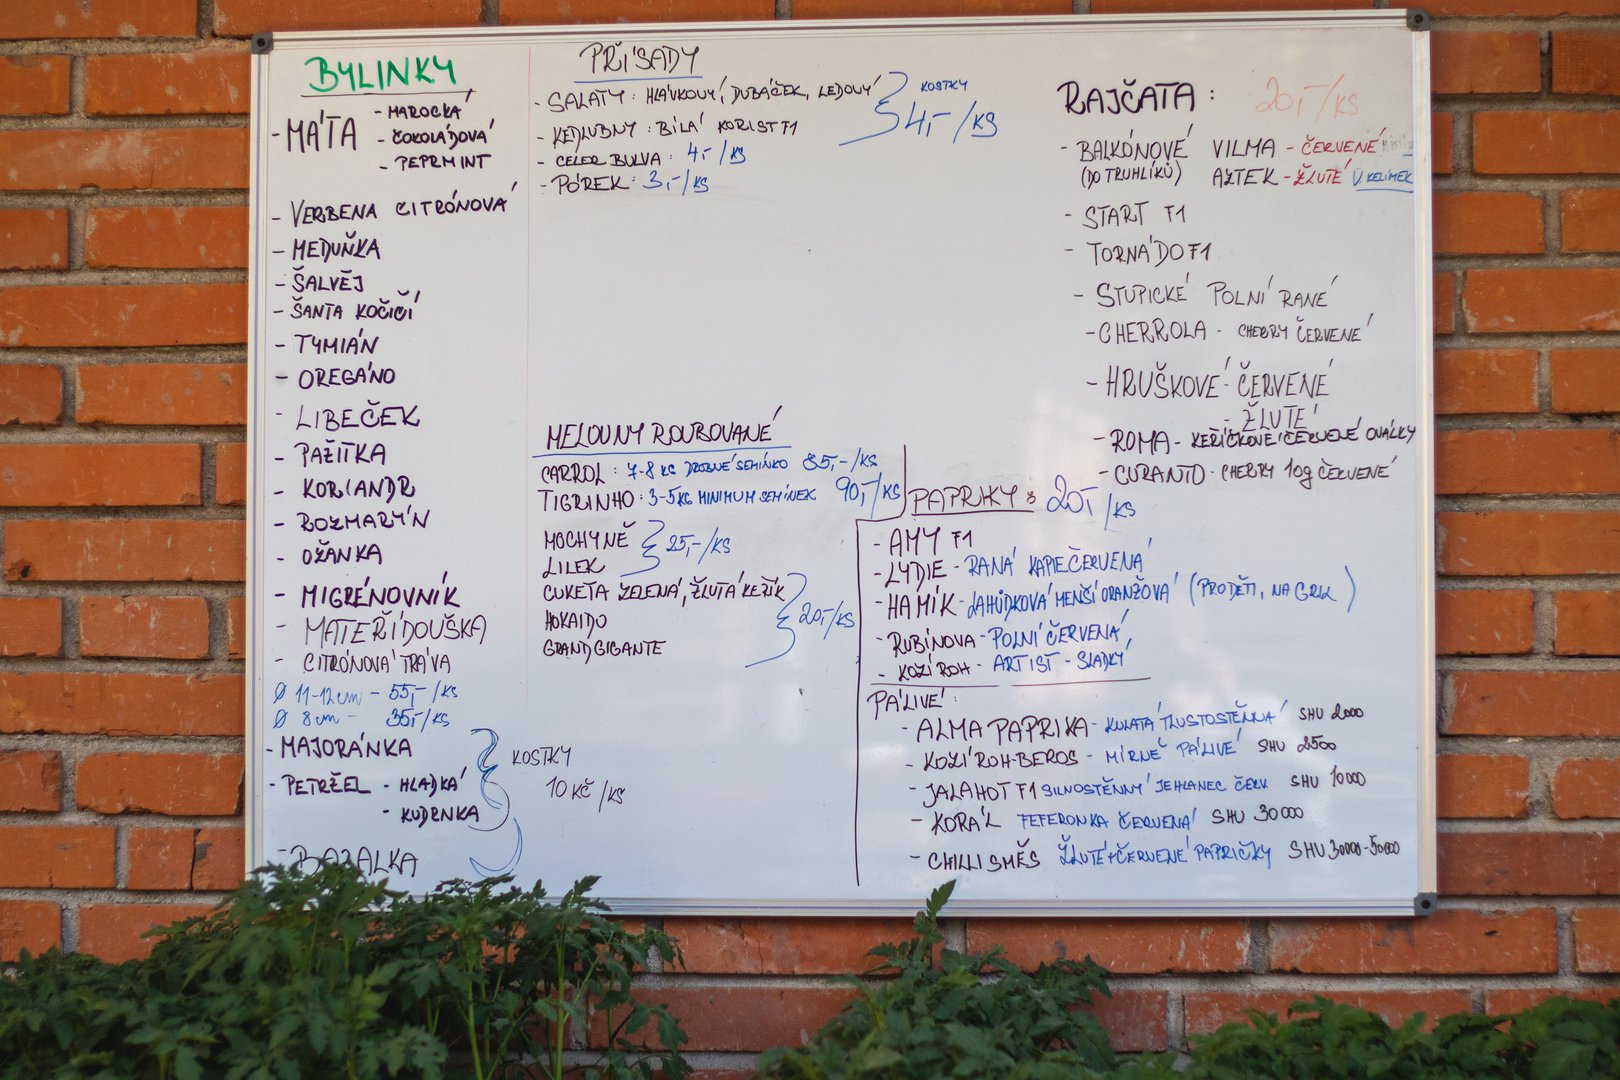 BYLINKY
- MÁTA - MAROCKÁ
- ČOKOLÁDOVÁ
- PEPRMINT
- VERBENA CITRÓNOVÁ
- MEDUŇKA
- ŠALVĚJ
- ŠANTA KOČIČÍ
- TYMIÁN
- OREGÁNO
- LIBEČEK
- PAŽITKA
- KORIANDR
- ROZMARÝN
- OŽANKA
- MIGRÉNOVNÍK
- MATEŘÍDOUŠKA
- CITRÓNOVÁ TRÁVA
Ø 11-12cm - 55,-/KS
Ø 8cm - 35,-/KS
- MAJORÁNKA
- PETRŽEL - HLADKÁ
- KUDRNKA
- BAZALKA
KOSTKY
10 KČ/KS
PŘÍSADY
- SALÁTY: HLÁVKOVÝ, DUBÁČEK, LEDOVÝ
- KEDLUBNY: BÍLÁ KORIST F1
KOSTKY
4,-/KS
- CELER BULVA: 4,-/KS
- PÓREK: 3,-/KS
MELOUNY ROUBOVANÉ
CARROL: 7-8 KG DROBNÉ SEMÍNKO 85,-/KS
TIGRINHO: 3-5KG MINIMUM SEMÍNEK 90,-/KS
MOCHYNĚ
LILEK
25,-/KS
CUKETA ZELENÁ, ŽLUTÁ KEŘÍK
HOKAIDO
GRAND GIGANTE
20,-/KS
RAJČATA: 20,-/KS
- BALKÓNOVÉ VILMA - ČERVENÉ
(DO TRUHLÍKŮ) AZTEK - ŽLUTÉ V KELÍMEK
- START F1
- TORNÁDO F1
- STUPICKÉ POLNÍ RANÉ
- CHERROLA - CHERRY ČERVENÉ
- HRUŠKOVÉ - ČERVENÉ
- ŽLUTÉ
- ROMA - KEŘÍČKOVÉ ČERVENÉ OVÁLKY
- CURANTO - CHERRY 10g ČERVENÉ
PAPRIKY: 20,-/KS
- AMY F1
- LYDIE - RANÁ KAPIE ČERVENÁ
- HAMÍK - LAHŮDKOVÁ MENŠÍ ORANŽOVÁ (PRO DĚTI, NA GRIL)
- RUBÍNOVA - POLNÍ ČERVENÁ
- KOZÍ ROH - ARTIST - SLADKÝ
PÁLIVÉ:
- ALMA PAPRIKA - KULATÁ TLUSTOSTĚNNÁ SHU 2000
- KOZÍ ROH-BEROS - MÍRNĚ PÁLIVÉ SHU 2500
- JALAHOT F1 SILNOSTĚNNÝ JEHLANEC ČERV SHU 10000
- KORÁL FEFERONKA ČERVENÁ SHU 30000
- CHILLI SMĚS ŽLUTÉ+ČERVENÉ PAPRIČKY SHU 30000-50000